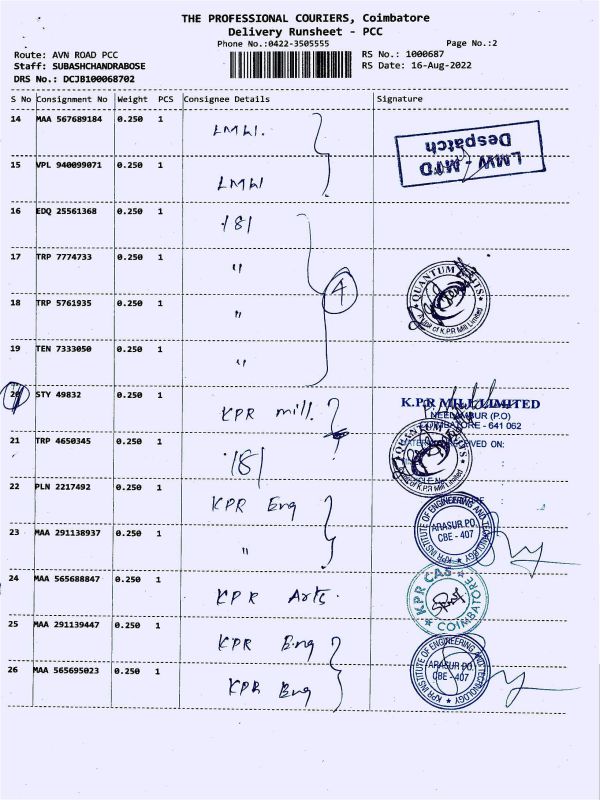 THE PROFESSIONAL COURIERS, Coimbatore
Delivery Runsheet - PCC
Phone No.:0422-3505555
Page No.:2
Route: AVN ROAD PCC
RS No.: 1000687
Staff: SUBASHCHANDRABOSE
RS Date: 16-Aug-2022
DRS No.: DCJB100068702
S No Consignment No Weight PCS Consignee Details Signature
14 MAA 567689184 0.250 1 LMW.
LMW - MTD
Despatch
15 VPL 940099071 0.250 1 LMW
16 EDQ 25561368 0.250 1 181
17 TRP 7774733 0.250 1 "
4
QUANTUM KNITS
A unit of K.P.R Mill Limited
18 TRP 5761935 0.250 1 "
19 TEN 7333050 0.250 1 "
20 STY 49832 0.250 1 KPR mill.
K.P.R MILL LIMITED
NEELAMBUR (P.O)
COIMBATORE - 641 062
21 TRP 4650345 0.250 1 181
RECEIVED ON:
QUANTUM KNITS
K.P.R Mill Limited
22 PLN 2217492 0.250 1 KPR Eng
KPR INSTITUTE OF ENGINEERING AND TECHNOLOGY
ARASUR.PO.
CBE - 407
23 MAA 291138937 0.250 1 "
24 MAA 565688847 0.250 1 KPR Arts.
KPR CAS
COIMBATORE
25 MAA 291139447 0.250 1 KPR Eng
26 MAA 565695023 0.250 1 KPR Eng
KPR INSTITUTE OF ENGINEERING AND TECHNOLOGY
ARASUR.PO.
CBE - 407